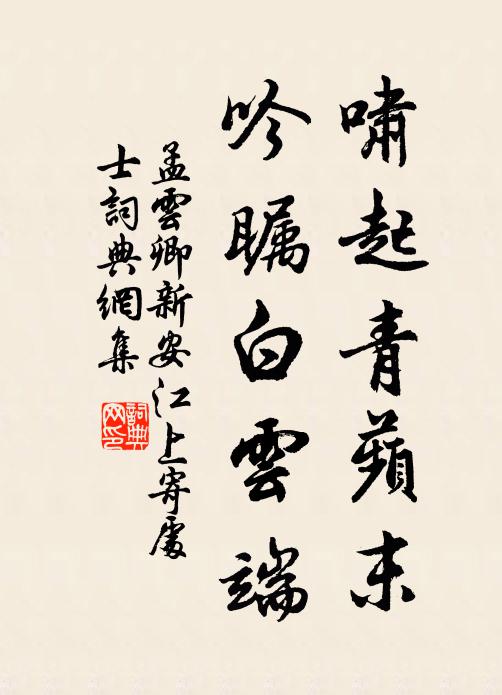 嘯起青蘋末
吟瞩白雲端
孟雲卿新安江上寄處
士詞典網集
詞典网印